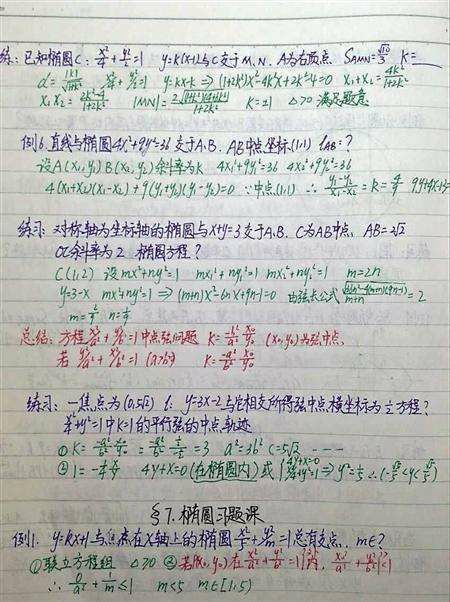 练: 已知椭圆C: x²/4 + y²/2 = 1 y=k(x-1)与C交于M、N. A为右顶点. S△AMN = √10/3 k=__
d = |k|/√(1+k²) x²/4 + y²/2 = 1 y=kx-k ⇒ (1+2k²)x²-4k²x+2k²-4=0 x₁+x₂ = 4k²/(1+2k²)
x₁x₂ = (2k²-4)/(1+2k²) |MN| = k=±1 △>0 满足题意
例6. 直线与椭圆4x²+9y²=36交于A.B. AB中点坐标(1,1) lAB=?
设A(x₁,y₁) B(x₂,y₂) 斜率为k 4x₁²+9y₁²=36 4x₂²+9y₂²=36
4(x₁+x₂)(x₁-x₂)+9(y₁+y₂)(y₁-y₂)=0 ∵中点(1,1) ∴ (y₁-y₂)/(x₁-x₂) = k =
练习: 对称轴为坐标轴的椭圆与x+y=3交于A.B. C为AB中点, AB=2√2
OC斜率为2 椭圆方程?
C(1,2) 设mx²+ny²=1 mx₁²+ny₁²=1 mx₂²+ny₂²=1 m=2n
y=3-x mx²+ny²=1 ⇒ (m+n)x²-6nx+9n-1=0 由弦长公式 = 2
m= n=
总结: 方程x²/a² + y²/b² = 1中点弦问题 k = -b²/a² · x₀/y₀ (x₀,y₀)为弦中点.
若 y²/a² + x²/b² = 1 (a>b>0) k =
练习: 一焦点为(0,5√2) l: y=3x-2与它相交所得弦中点横坐标为1/2 方程?
x²/4+y²=1中k=1的平行弦的中点轨迹
① k = = 3 a²=3b² c=5√2 ----
② 1 = 4y+x=0 (在椭圆内) 或
§7. 椭圆习题课
例1. y=kx+1与焦点在x轴上的椭圆x²/5 + y²/m = 1总有交点. m∈?
①联立方程组 △≥0 ②若P(x₀,y₀)在x²/a² + y²/b² = 1
∴ 0/a² + 1/m ≤ 1 m<5 m∈[1,5)